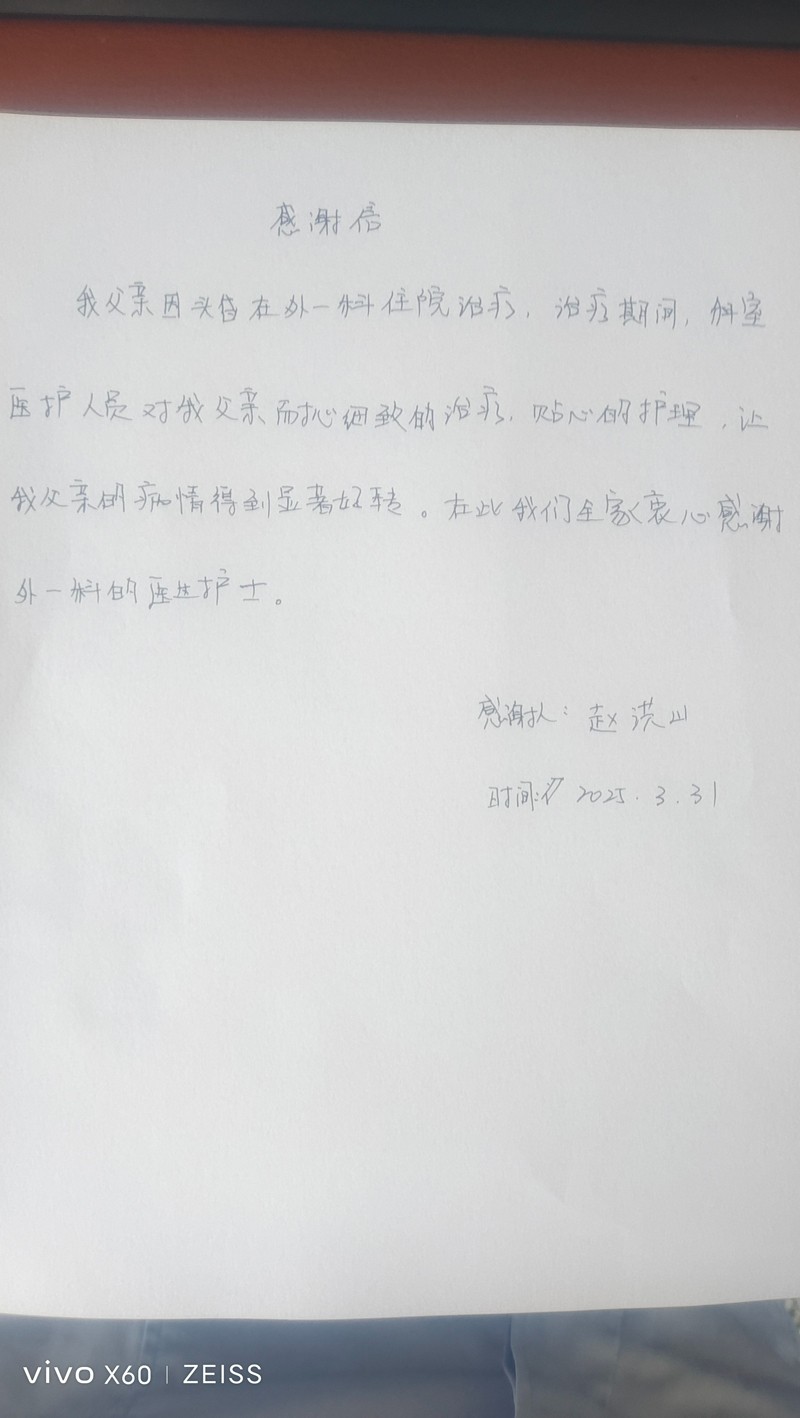 感谢信
我父亲因头昏在外一科住院治疗，治疗期间，科室
医护人员对我父亲耐心细致的治疗，贴心的护理，让
我父亲的病情得到显著好转。在此我们全家衷心感谢
外一科的医生护士。
感谢人：赵洪山
时间：2025.3.31
vivo X60 | ZEISS